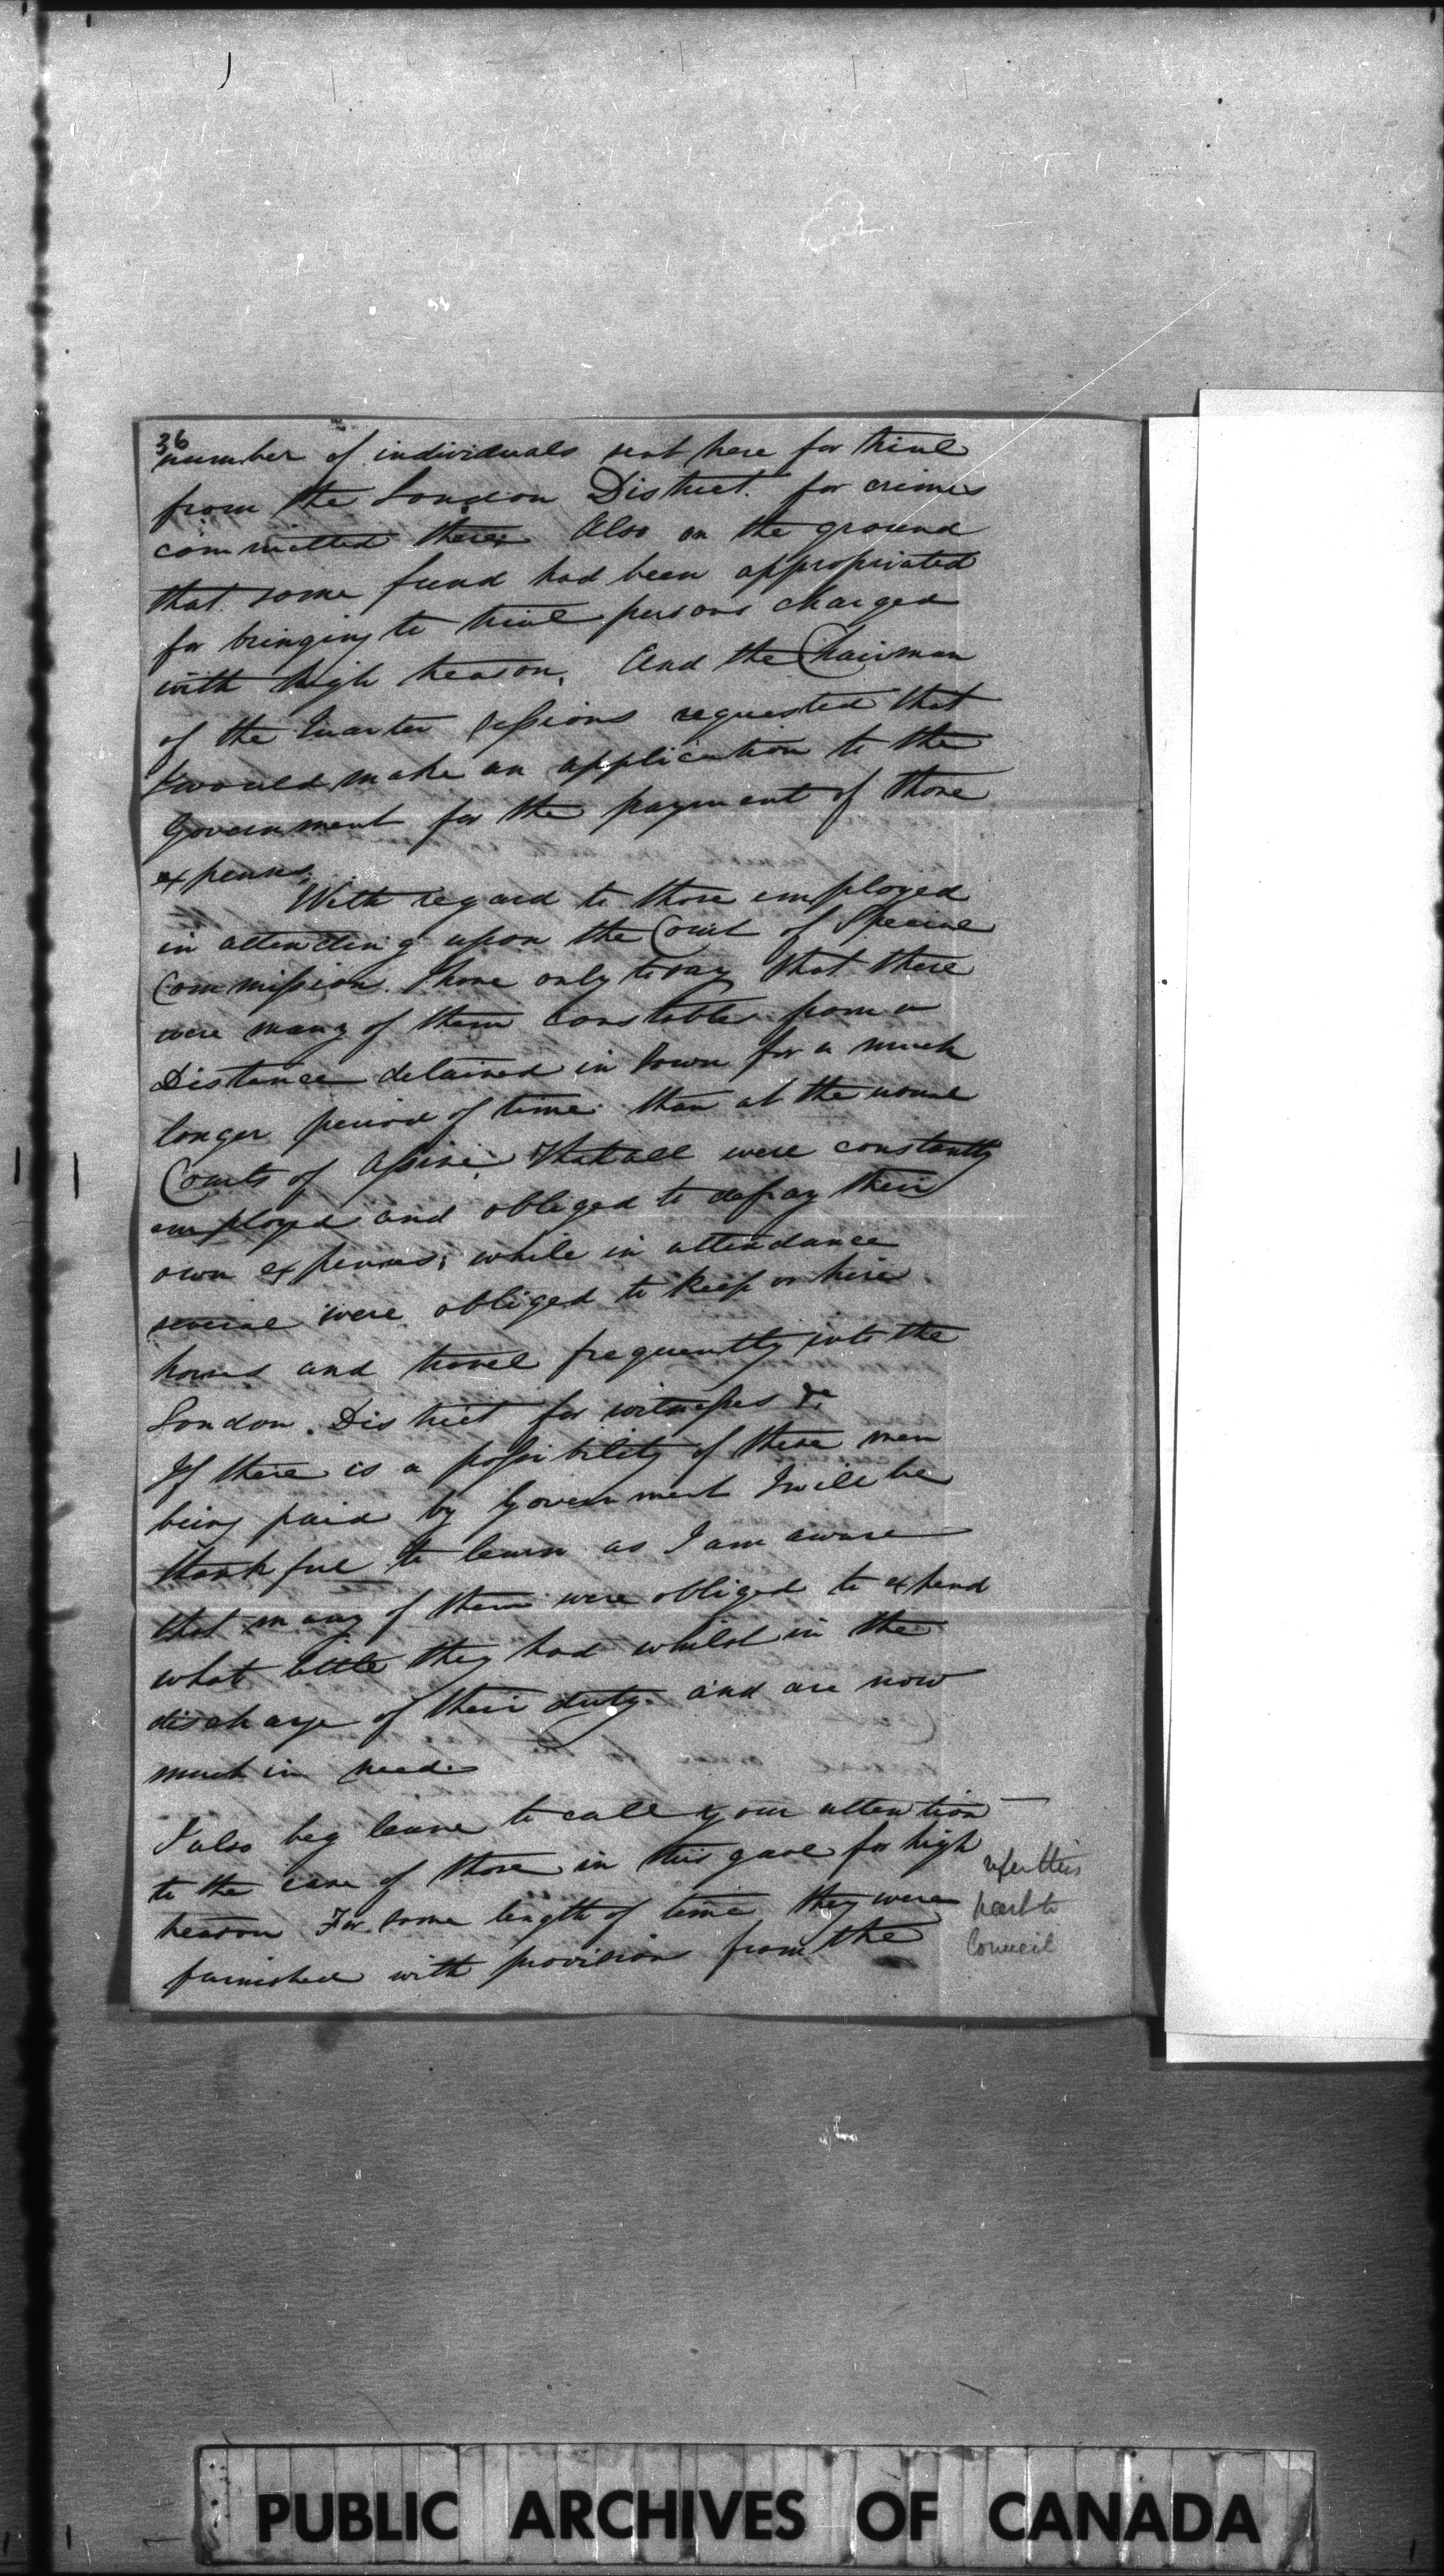 36
number of individuals sent here for trial
from the London District for crimes
committed there; Also on the ground
that some fund had been appropriated
for bringing to trial persons charged
with high treason. And the Chairman
of the Quarter Sessions requested that
I would make an application to the
Government for the payment of those
expenses.
With regard to those employed
in attending upon the Court of Special
Commission. I have only to say that there
were many of them constables from a
Distance detained in Town for a much
longer period of time than at the usual
Courts of Assize, that all were constantly
employed and obliged to defray their
own expenses; while in attendance
several were obliged to keep or hire
horses and travel frequently into the
London District for witnesses &c
If there is a possibility of these men
being paid by Government I will be
thankful to learn as I am aware
that many of them were obliged to expend
what little they had whilst in the
discharge of their duty and are now
much in need.
I also beg leave to call your attention
to the case of those in this gaol for high
treason For some length of time they were
furnished with provisions from the
refer this
part to
Council
PUBLIC ARCHIVES OF CANADA